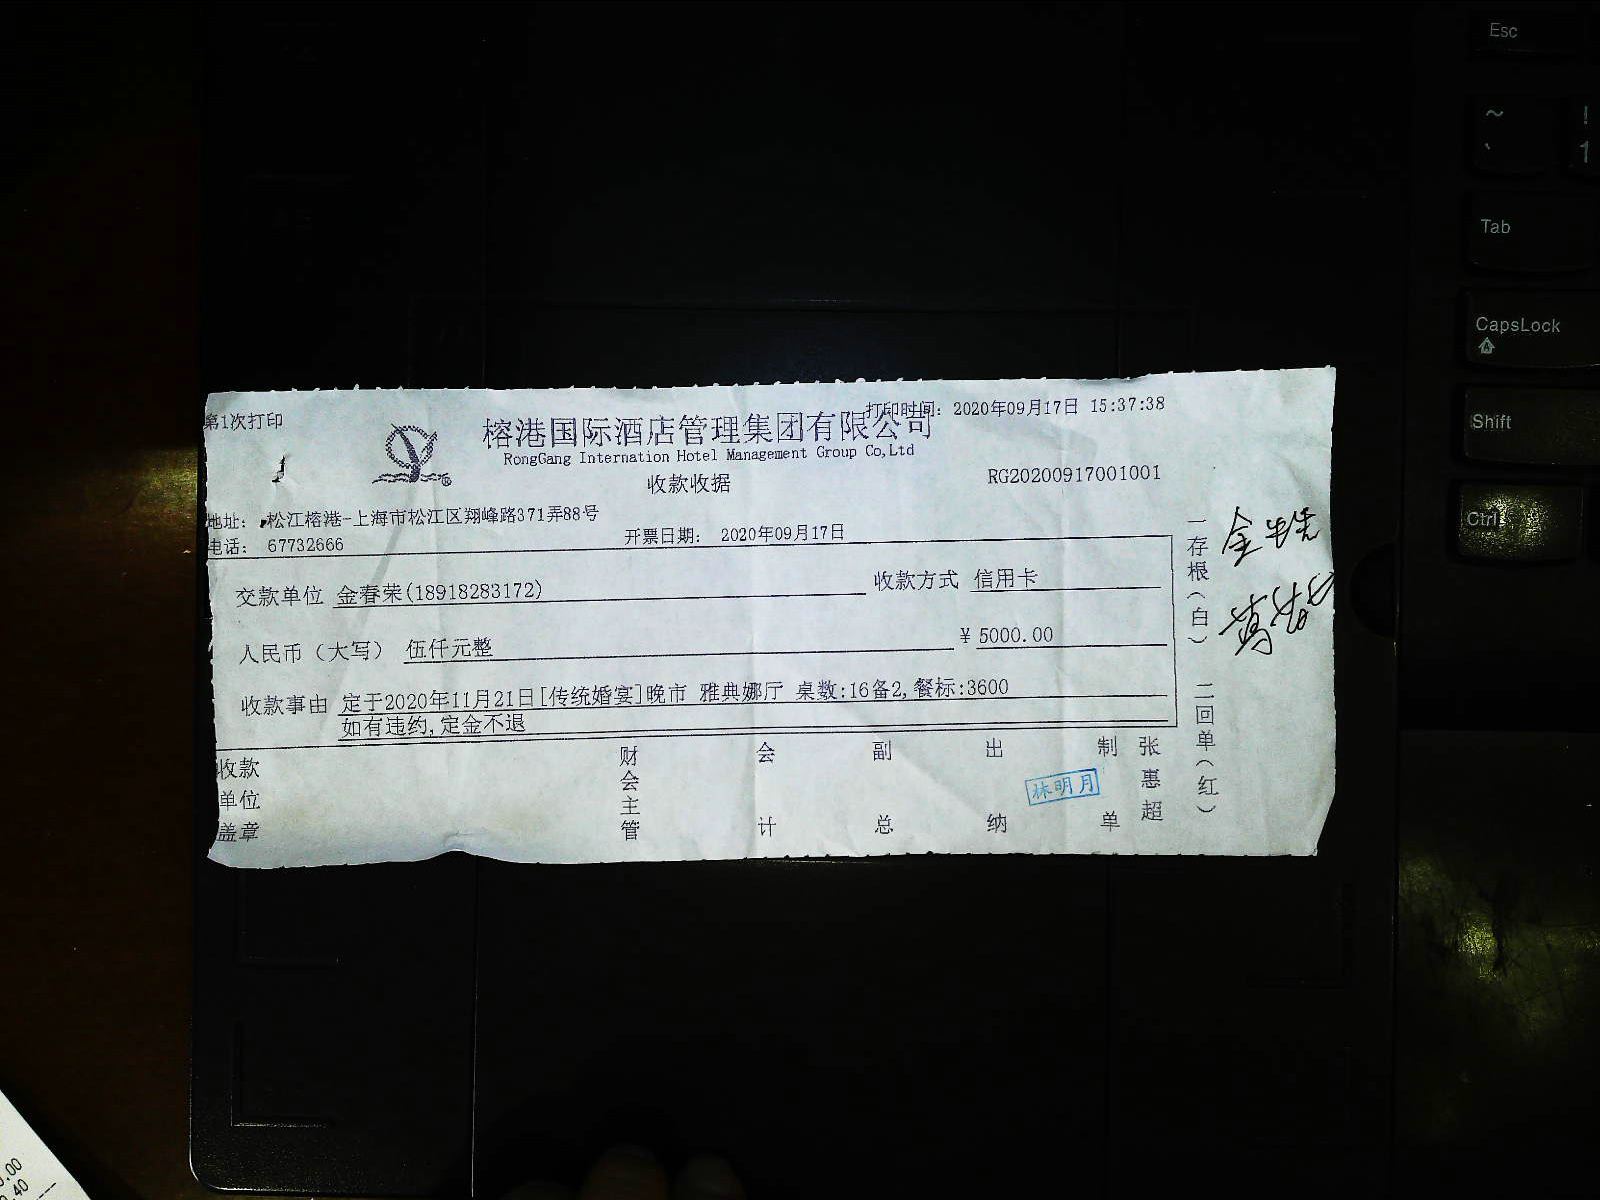 第1次打印
打印时间: 2020年09月17日 15:37:38
榕港国际酒店管理集团有限公司
RongGang Internation Hotel Management Group Co,Ltd
收款收据
RG20200917001001
地址: 松江榕港-上海市松江区翔峰路371弄88号
电话: 67732666
开票日期: 2020年09月17日
交款单位 金春荣(18918283172) 收款方式 信用卡
人民币(大写) 伍仟元整 ¥ 5000.00
收款事由 定于2020年11月21日[传统婚宴]晚市 雅典娜厅 桌数:16备2,餐标:3600
如有违约,定金不退
收款单位盖章 财会主管 会计 副总 出纳 林明月 制单 张惠超
一存根(白) 二回单(红)
Esc
~
`
!
1
Tab
CapsLock
A
Shift
Ctrl
.00
.40